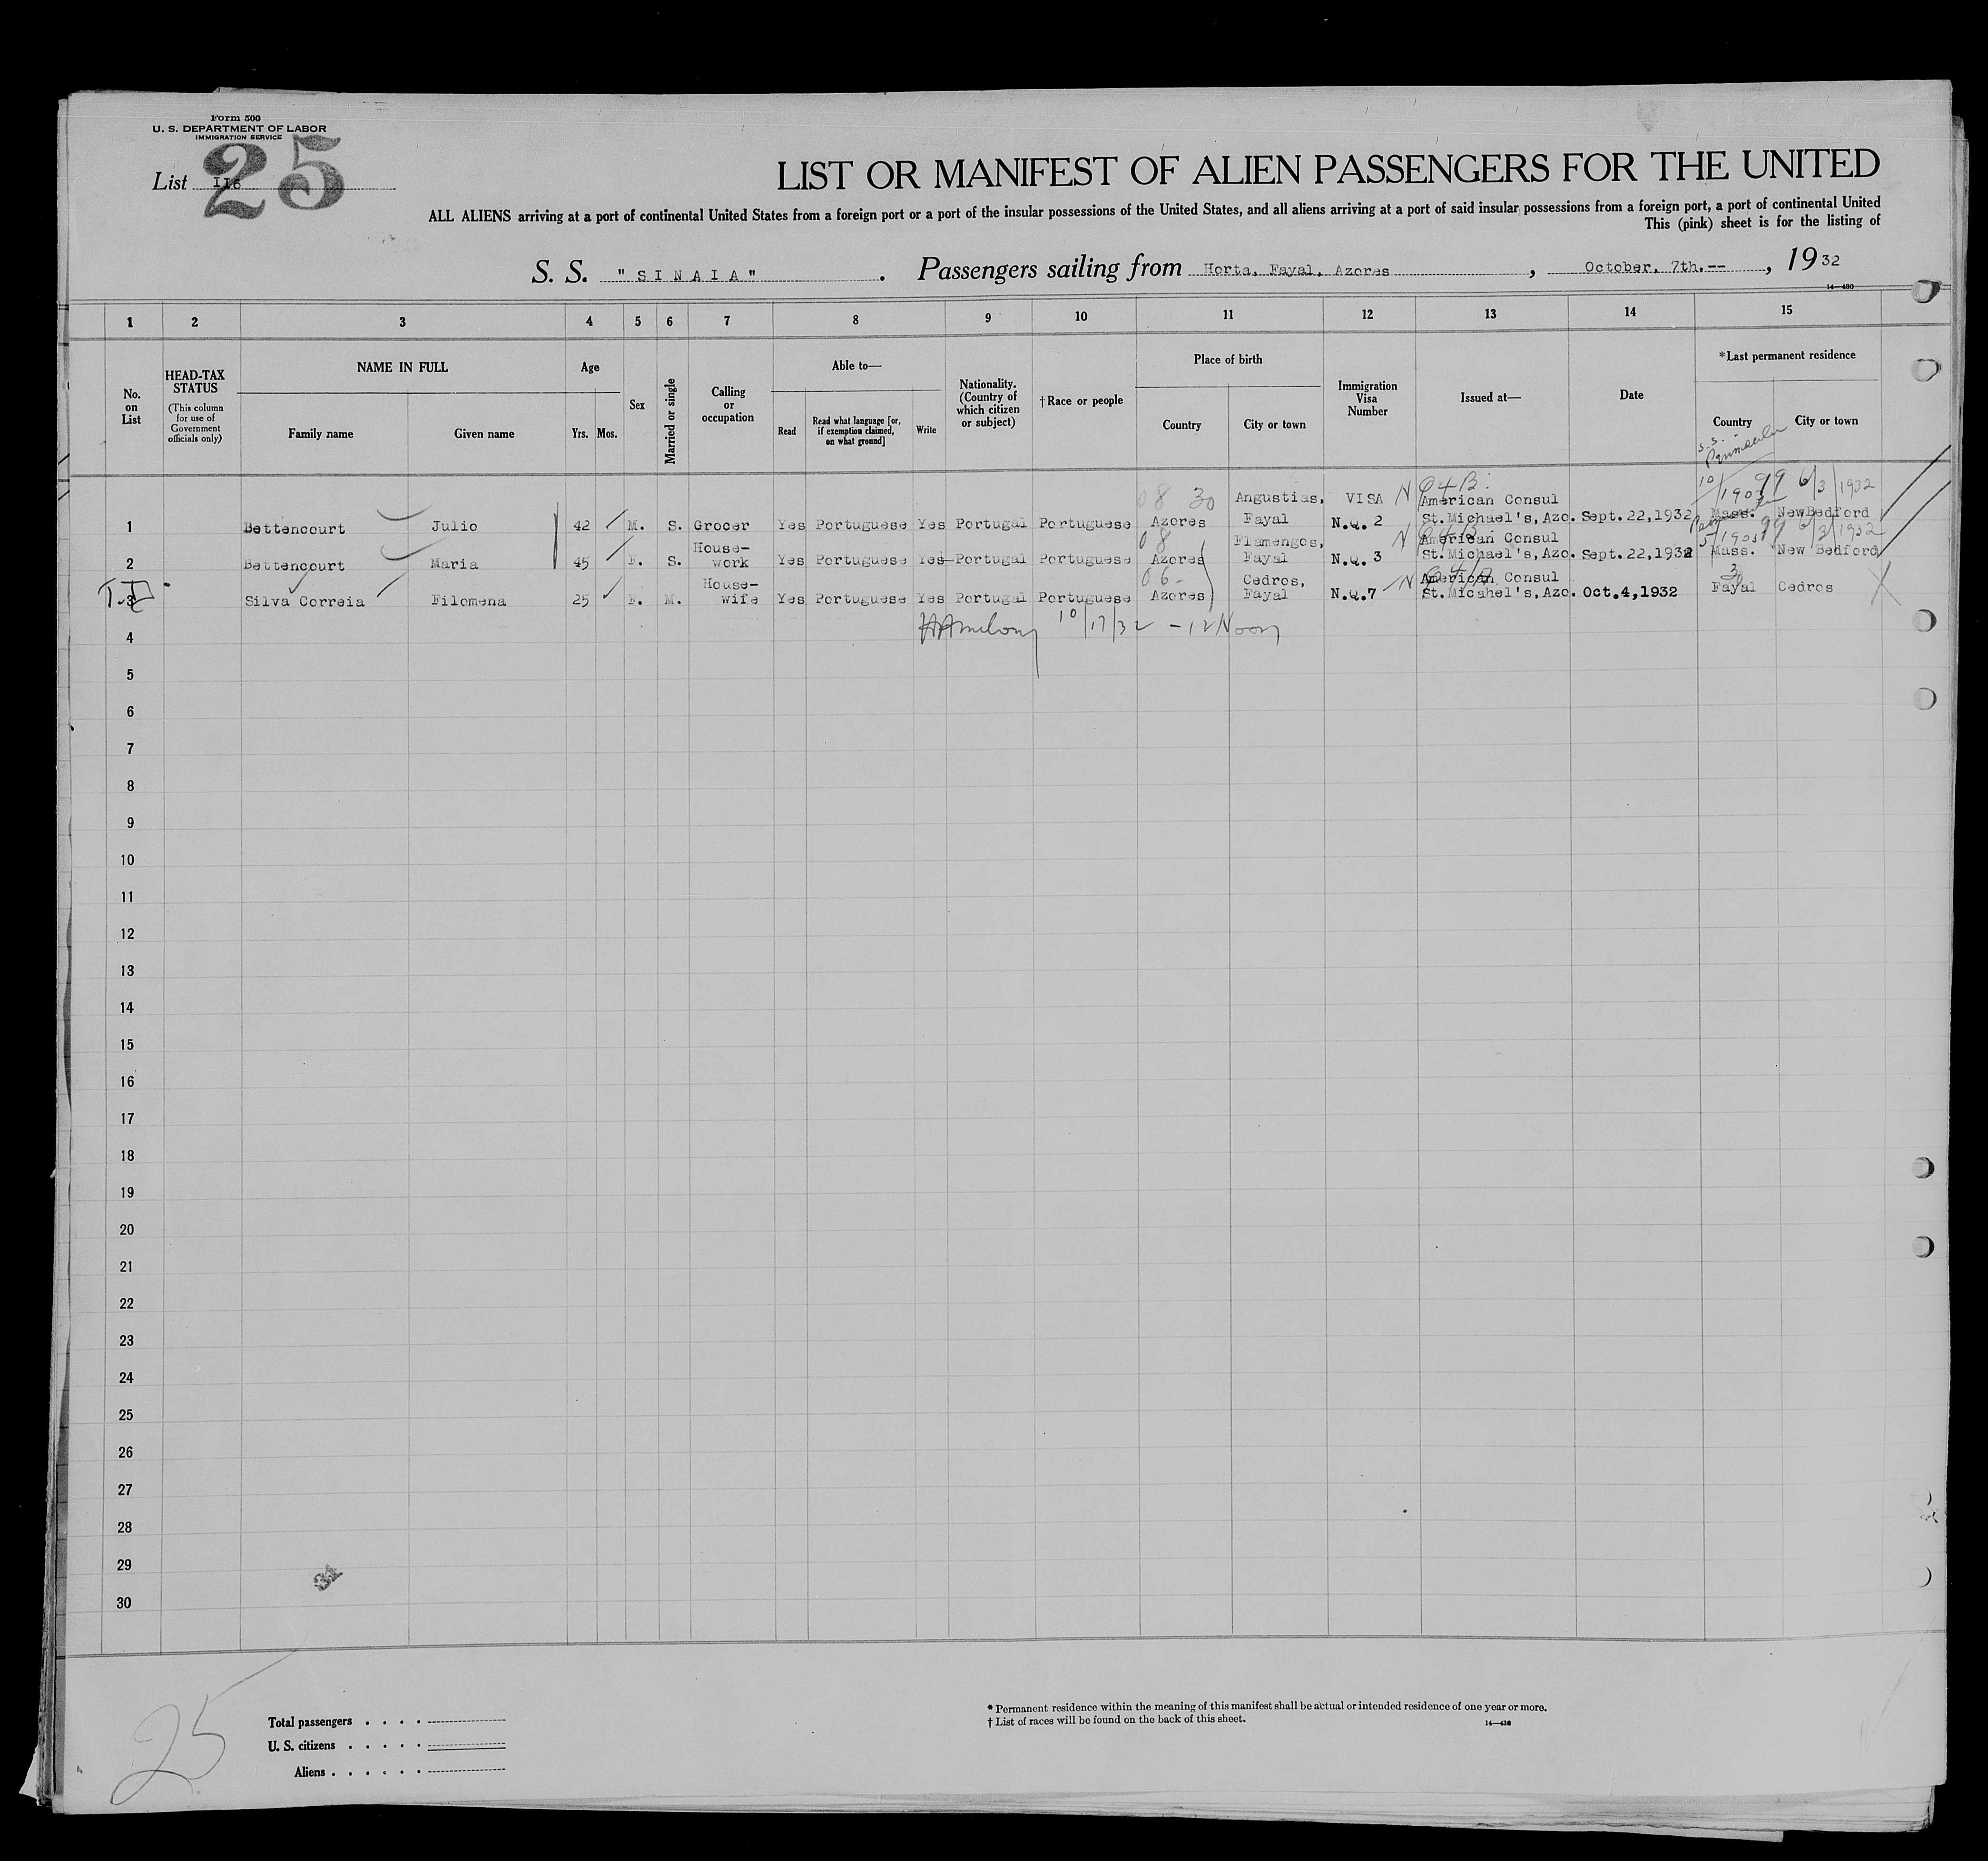 Form 500
U. S. DEPARTMENT OF LABOR
IMMIGRATION SERVICE
List II6
25
LIST OR MANIFEST OF ALIEN PASSENGERS FOR THE UNITED
ALL ALIENS arriving at a port of continental United States from a foreign port or a port of the insular possessions of the United States, and all aliens arriving at a port of said insular possessions from a foreign port, a port of continental United
This (pink) sheet is for the listing of
S. S. "SINAIA". Passengers sailing from Horta, Fayal, Azores, October, 7th.--, 1932
14—430
1 2 3 4 5 6 7 8 9 10 11 12 13 14 15
No. on List
HEAD-TAX STATUS (This column for use of Government officials only)
NAME IN FULL
Family name Given name
Age
Yrs. Mos.
Sex
Married or single
Calling or occupation
Able to—
Read
Read what language [or, if exemption claimed, on what ground]
Write
Nationality. (Country of which citizen or subject)
†Race or people
Place of birth
Country City or town
Immigration Visa Number
Issued at—
Date
*Last permanent residence
Country City or town
S.S.
08 30 Angustias, VISA N 64B. American Consul 10/1903 99 6/3/1932
1 Bettencourt Julio 42 M. S. Grocer Yes Portuguese Yes Portugal Portuguese Azores Fayal N.Q. 2 St.Michael's, Azo. Sept.22,1932 Mass. NewBedford
House- 08 Flamengos, N American Consul 5/1903 99 6/3/1932
2 Bettencourt Maria 45 F. S. work Yes Portuguese Yes Portugal Portuguese Azores Fayal N.Q. 3 St.Michael's, Azo. Sept.22,1932 Mass. New Bedford
House- 06 Cedros, N American Consul 30
3 Silva Correia Filomena 25 F. M. wife Yes Portuguese Yes Portugal Portuguese Azores Fayal N.Q.7 St.Micahel's, Azo. Oct.4,1932 Fayal Cedros
4 10/17/32 - 12 Noon
5
6
7
8
9
10
11
12
13
14
15
16
17
18
19
20
21
22
23
24
25
26
27
28
29
30
25
Total passengers
U. S. citizens
Aliens
* Permanent residence within the meaning of this manifest shall be actual or intended residence of one year or more.
† List of races will be found on the back of this sheet.
14—430